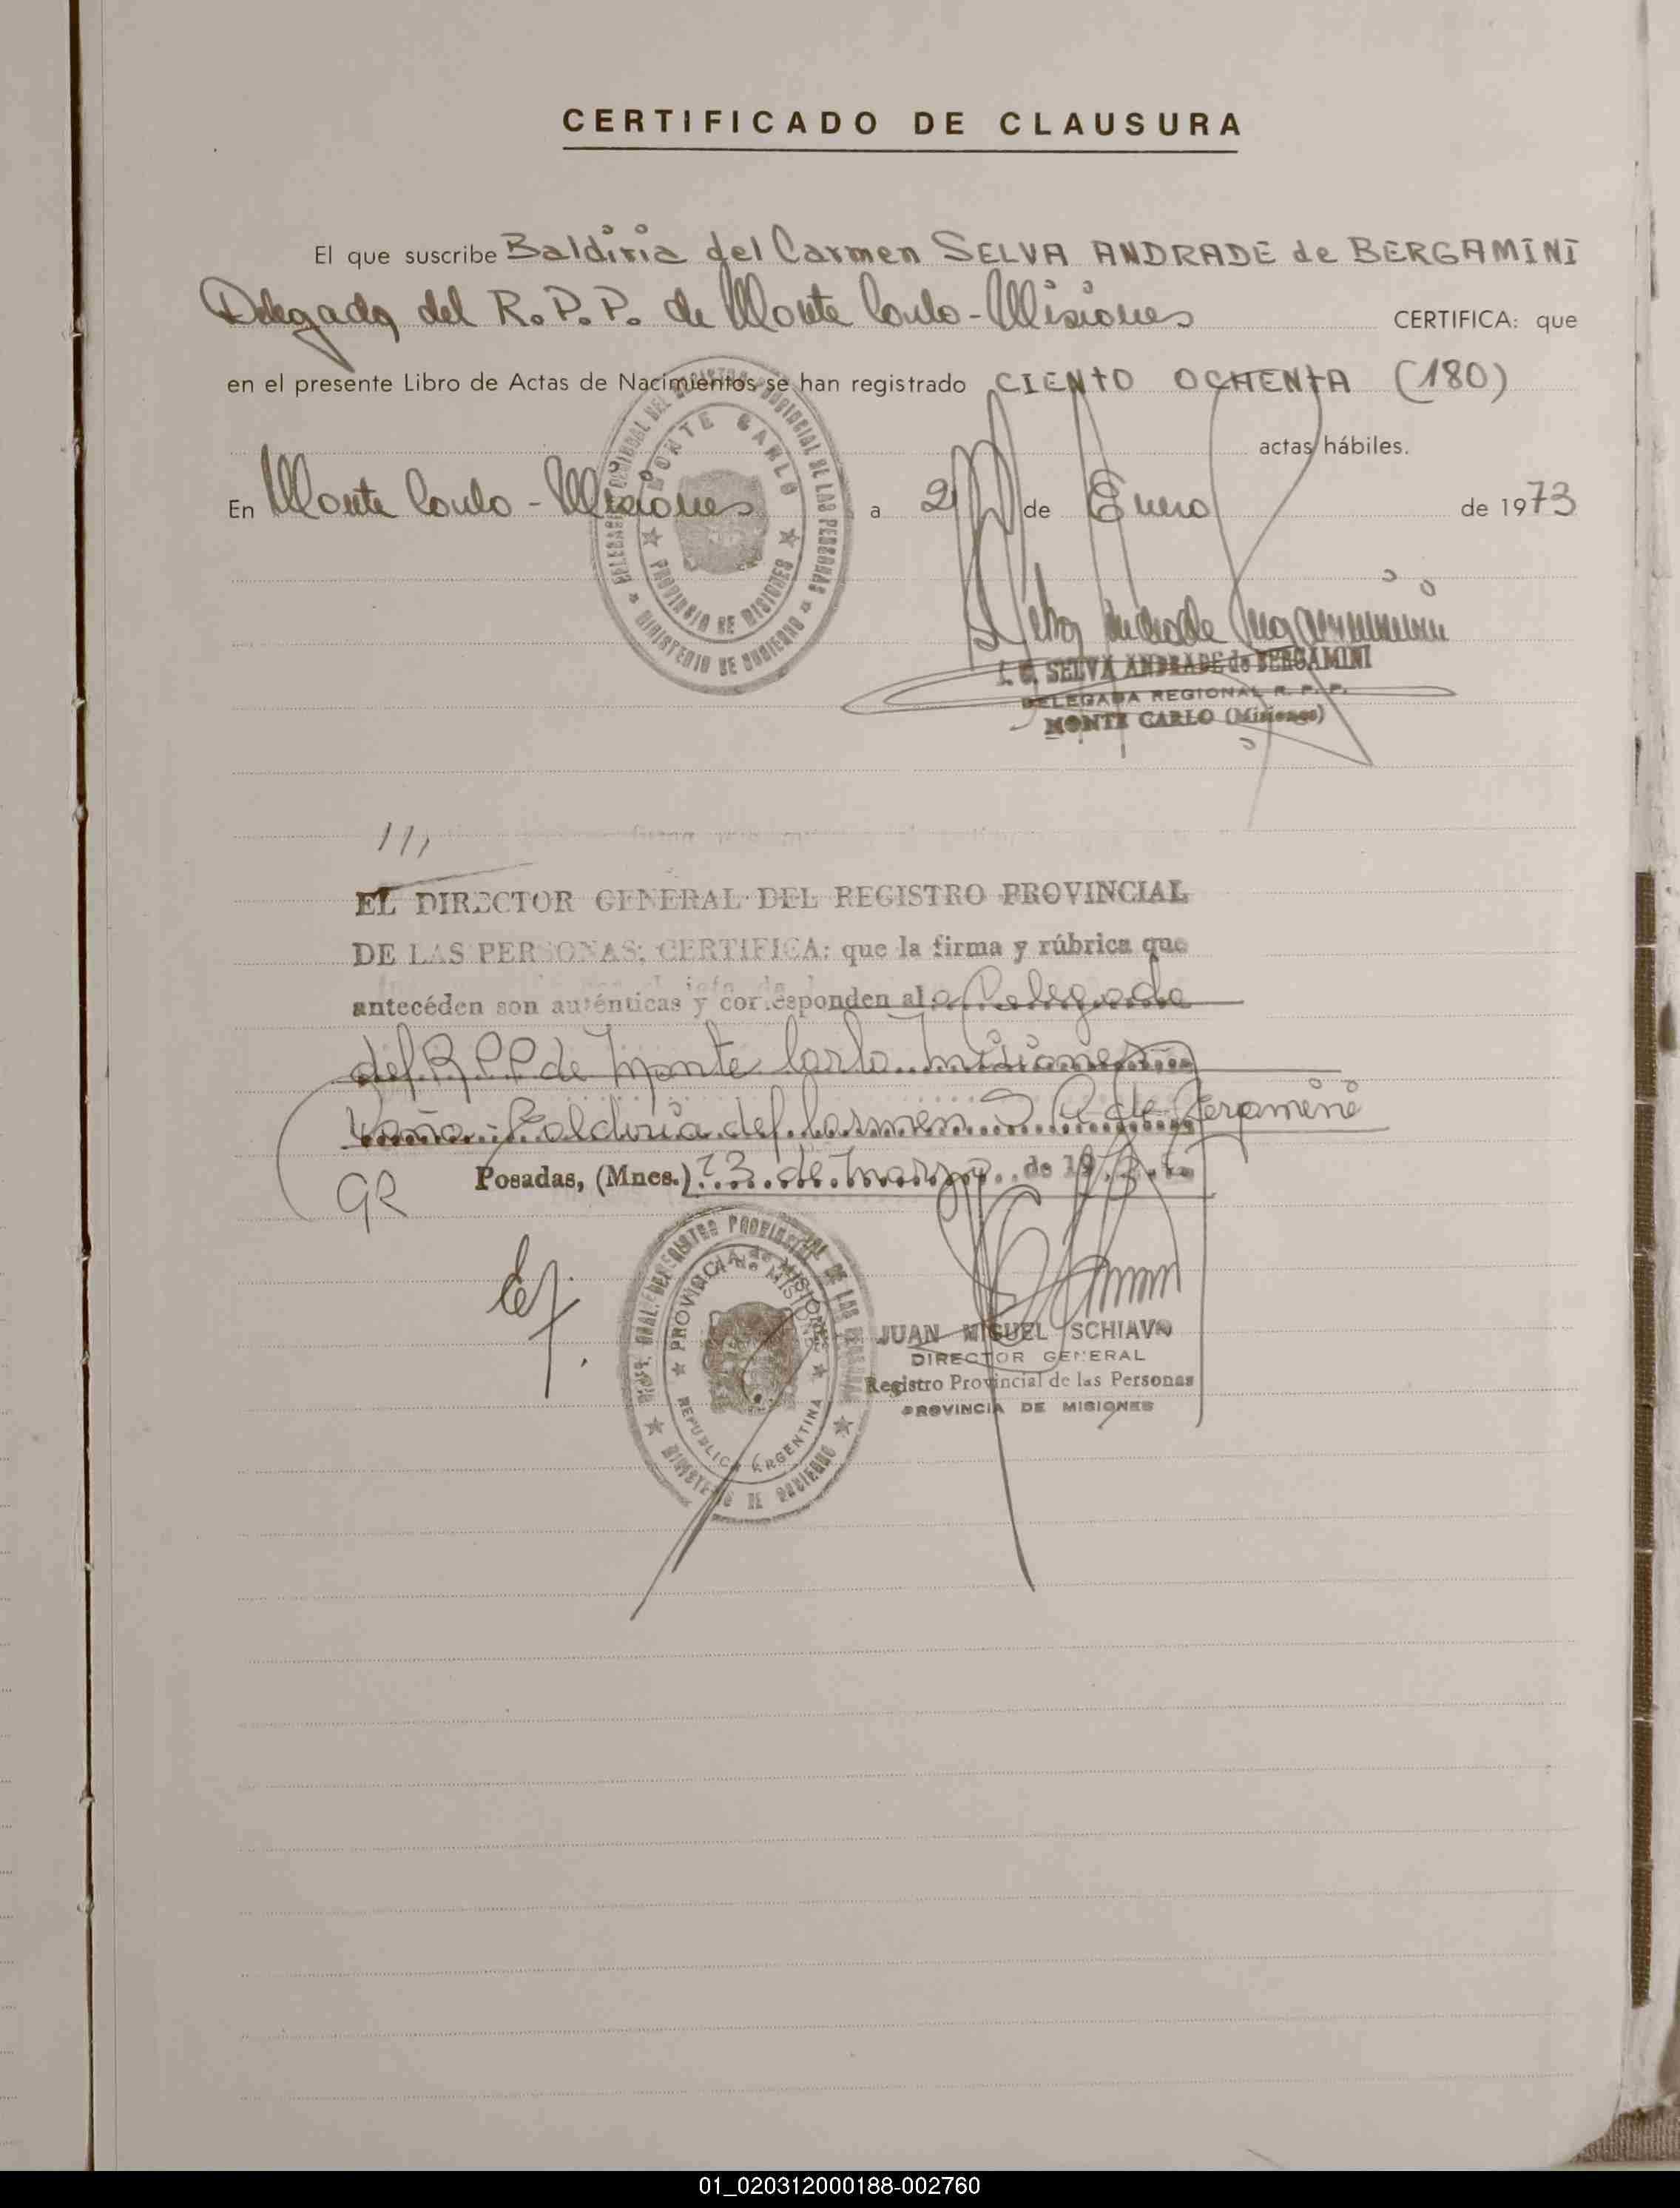 CERTIFICADO DE CLAUSURA
El que suscribe Baldiria del Carmen SELVA ANDRADE de BERGAMINI
Delegada del R.P.P. de Monte Carlo - Misiones CERTIFICA: que
en el presente Libro de Actas de Nacimientos se han registrado CIENTO OCHENTA (180)
actas hábiles.
En Monte Carlo - Misiones a 2 de Enero de 1973
MONTE CARLO
DELEGACION REGIONAL DEL REGISTRO PROVINCIAL DE LAS PERSONAS
PROVINCIA DE MISIONES
MINISTERIO DE GOBIERNO
SELVA ANDRADE de BERGAMINI
DELEGADA REGIONAL R. P. P.
MONTE CARLO (Misiones)
EL DIRECTOR GENERAL DEL REGISTRO PROVINCIAL
DE LAS PERSONAS; CERTIFICA: que la firma y rúbrica que
antecéden son auténticas y corresponden al a Delegada
del R.P.P de Monte Carlo Misiones
Baldiria del Carmen S. A. de Bergamini
GR
Posadas, (Mnes.) 23 de Marzo de 1973
REGISTRO PROVINCIAL DE LAS PERSONAS
PROVINCIA de MISIONES
REPUBLICA ARGENTINA
MINISTERIO DE GOBIERNO
JUAN MIGUEL SCHIAVO
DIRECTOR GENERAL
Registro Provincial de las Personas
PROVINCIA DE MISIONES
01_020312000188-002760